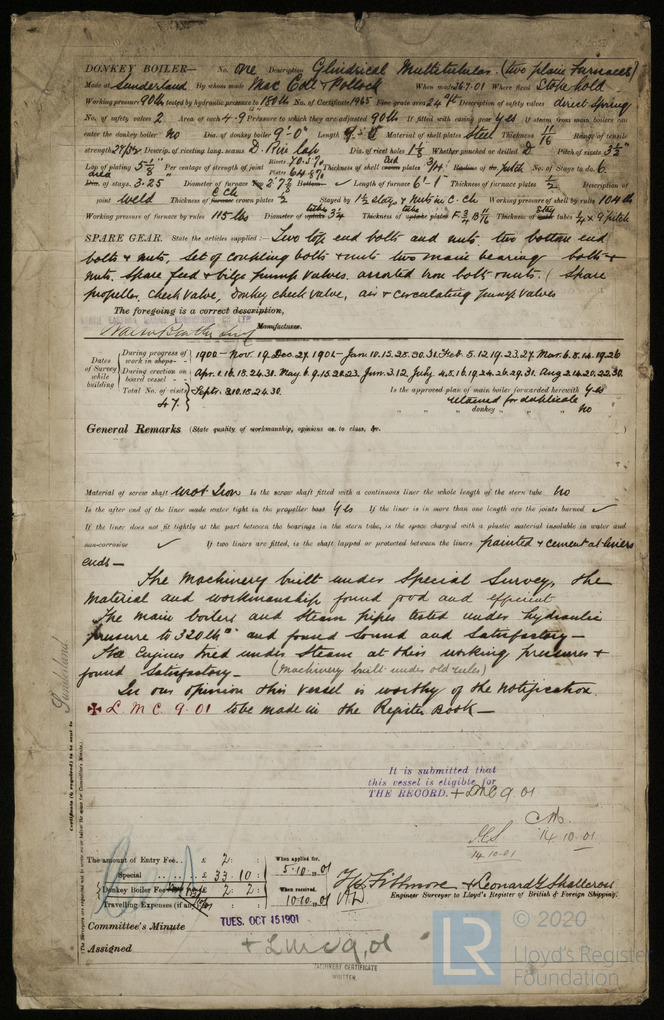 DONKEY BOILER— No. One Description Cylindrical Multitubular (two plain furnaces)
Made at Sunderland By whom made Mac Coll & Pollock When made 26.7.01 Where fixed Stokehold
Working pressure 90 lb tested by hydraulic pressure to 180 lb No. of Certificate 1965 Fire grate area 24 ft Description of safety valves direct spring
No. of safety valves 2 Area of each 4.9 Pressure to which they are adjusted 90 lb If fitted with easing gear yes If steam from main boilers can
enter the donkey boiler No Dia. of donkey boiler 9'-0" Length Material of shell plates Steel Thickness 11/16 Range of tensile
strength 27/32 Descrip. of riveting long. seams D. Riv lap Dia. of rivet holes 1 1/8 Whether punched or drilled D Pitch of rivets 3 1/2"
Lap of plating 5 1/8" Per centage of strength of joint Rivets 70.5% Plates 64.8% Thickness of shell crown plates 3/4 Radius of do. pitch No. of Stays to do. 6
area Dia. of stays. 3.25" Diameter of furnace Top 2' 7 5/8 Bottom ✓ Length of furnace 6'-1" Thickness of furnace plates 1/2 Description of
joint weld Thickness of furnace crown plates 1/2 Stayed by 1 3/8 stays & nuts in C. Ch. Working pressure of shell by rules 104 lb
Working pressure of furnace by rules 115 lbs Diameter of uptake 3 1/4 Thickness of uptake plates F. 3/4 B 11/16 Thickness of tubes 1/4 x 9 pitch
SPARE GEAR. State the articles supplied:— Two top end bolts and nuts, two bottom end
bolts & nuts, set of coupling bolts & nuts two main bearing bolts &
nuts, spare feed & bilge pump valves. assorted iron bolts & nuts. (Spare
propeller, check valve, donkey check valve, air & circulating pump valves
The foregoing is a correct description,
Manufacturer.
Dates of Survey while building
During progress of work in shops - - 1900 - Nov. 19. Dec. 27. 1901 - Jan. 10. 15. 25. 30. 31. Feb. 5. 12. 19. 23. 27. Mar. 6. 8. 14. 19. 26
During erection on board vessel - - Apr. 1. 16. 18. 24. 30. May 6. 9. 15. 20. 23. Jun. 3. 12. July 4. 5. 16. 19. 24. 26. 29. 31. Aug 2. 14. 20. 22. 30.
Total No. of visits 47. Septr. 3. 10. 18. 24. 30. Is the approved plan of main boiler forwarded herewith yes
retained for duplicate
" " " donkey " " " no
General Remarks (State quality of workmanship, opinions as to class, &c.
Material of screw shaft Wrot Iron Is the screw shaft fitted with a continuous liner the whole length of the stern tube No
Is the after end of the liner made water tight in the propeller boss yes If the liner is in more than one length are the joints burned ✓
If the liner does not fit tightly at the part between the bearings in the stern tube, is the space charged with a plastic material insoluble in water and
non-corrosive ✓ If two liners are fitted, is the shaft lapped or protected between the liners painted & cement at liners
ends—
The Machinery built under Special Survey, the
material and workmanship found good and efficient
The main boilers and steam pipes tested under hydraulic
pressure to 320 lb □" and found sound and satisfactory—
The Engines tried under Steam at their working pressures &
found satisfactory— (Machinery built under old rules)
In our opinion this vessel is worthy of the notification
✠ L M C. 9.01 to be made in the Register Book—
Sunderland
Certificate (if required) to be sent to
(The Surveyors are requested not to write on or below the space for Committee's Minute.)
It is submitted that
this vessel is eligible for
THE RECORD. + LMC 9.01
14.10.01
14.10.01
The amount of Entry Fee.. £ 2: : When applied for.
Special .. .. .. £ 33. 10: 5.10.01
Donkey Boiler Fee .. .. £ 2: 2: When received,
Travelling Expenses (if any) 10.10.01
H. W. Fillmore & Leonard G Shallcross
Engineer Surveyor to Lloyd's Register of British & Foreign Shipping.
Committee's Minute TUES. OCT 15 1901
Assigned + LMC 9.01
MACHINERY CERTIFICATE
WRITTEN.
LR © 2020
Lloyd's Register
Foundation